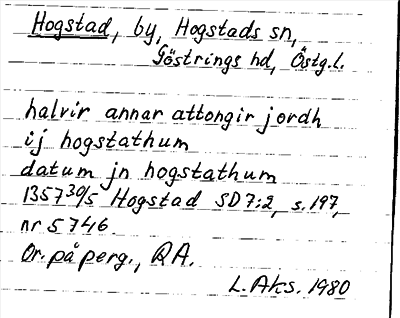 Hogstad, by, Hogstads sn,
Göstrings hd, Östg.l.
halvir annar attongir jordh
ij hogstathum
datum jn hogstathum
1357 30/5 Hogstad SD 7:2, s. 197,
nr 5746.
Or. på perg., RA.
L. Aks. 1980